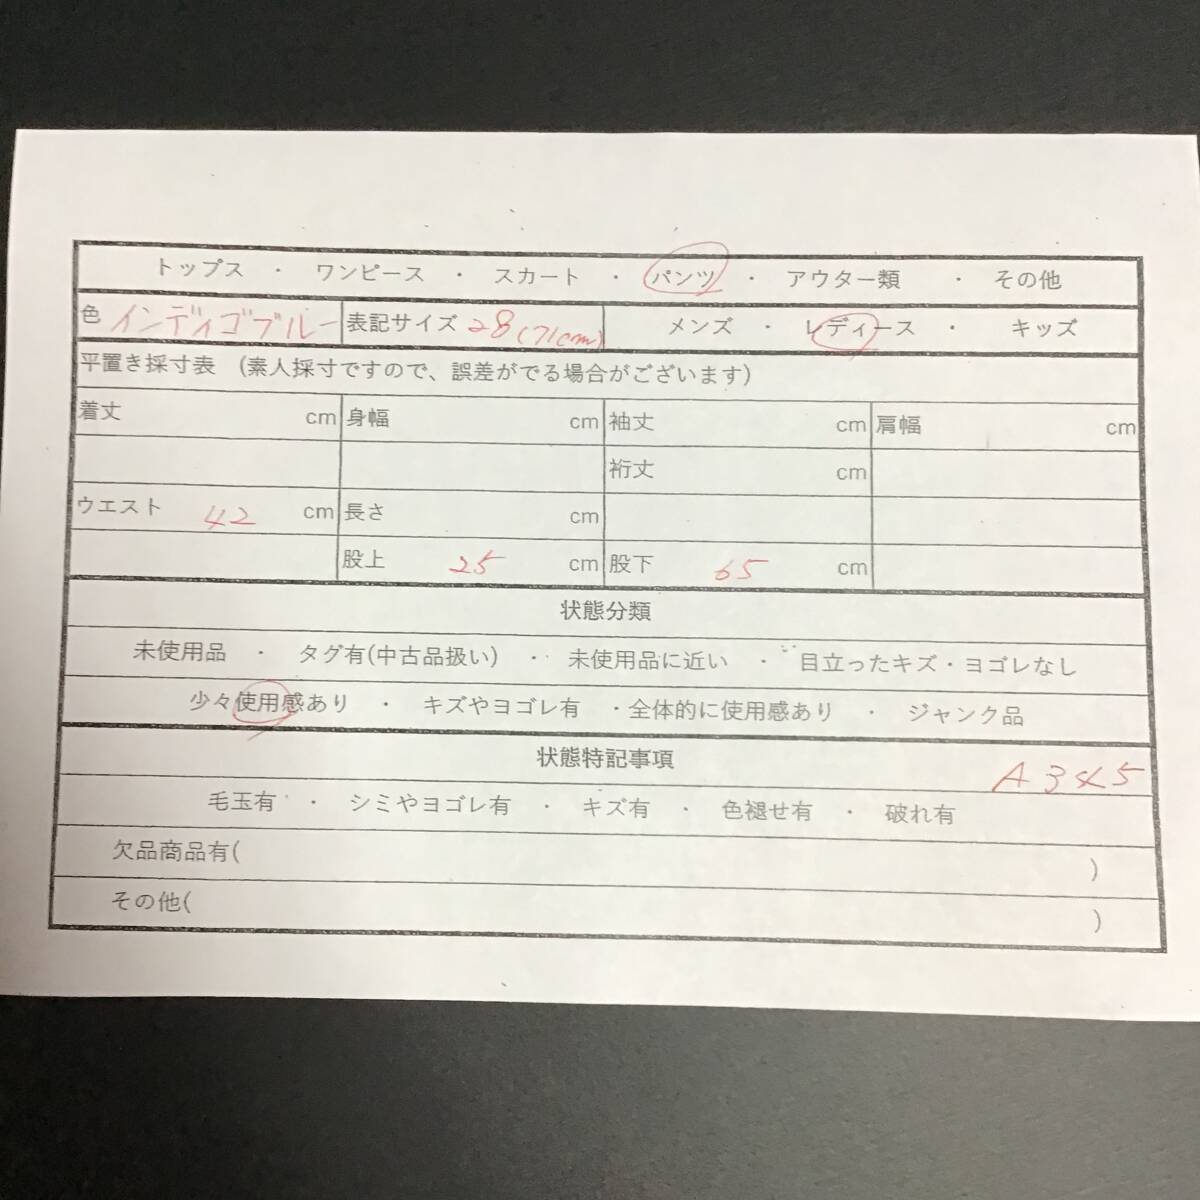 トップス ・ ワンピース ・ スカート ・ パンツ ・ アウター類 ・ その他
色 インディゴブルー 表記サイズ 28(71cm) メンズ ・ レディース ・ キッズ
平置き採寸表 (素人採寸ですので、誤差がでる場合がございます)
着丈 cm 身幅 cm 袖丈 cm 肩幅 cm
裄丈 cm
ウエスト 42 cm 長さ cm
股上 25 cm 股下 65 cm
状態分類
未使用品 ・ タグ有(中古品扱い) ・ 未使用品に近い ・ 目立ったキズ・ヨゴレなし
少々使用感あり ・ キズやヨゴレ有 ・全体的に使用感あり ・ ジャンク品
状態特記事項 A345
毛玉有 ・ シミやヨゴレ有 ・ キズ有 ・ 色褪せ有 ・ 破れ有
欠品商品有( )
その他( )